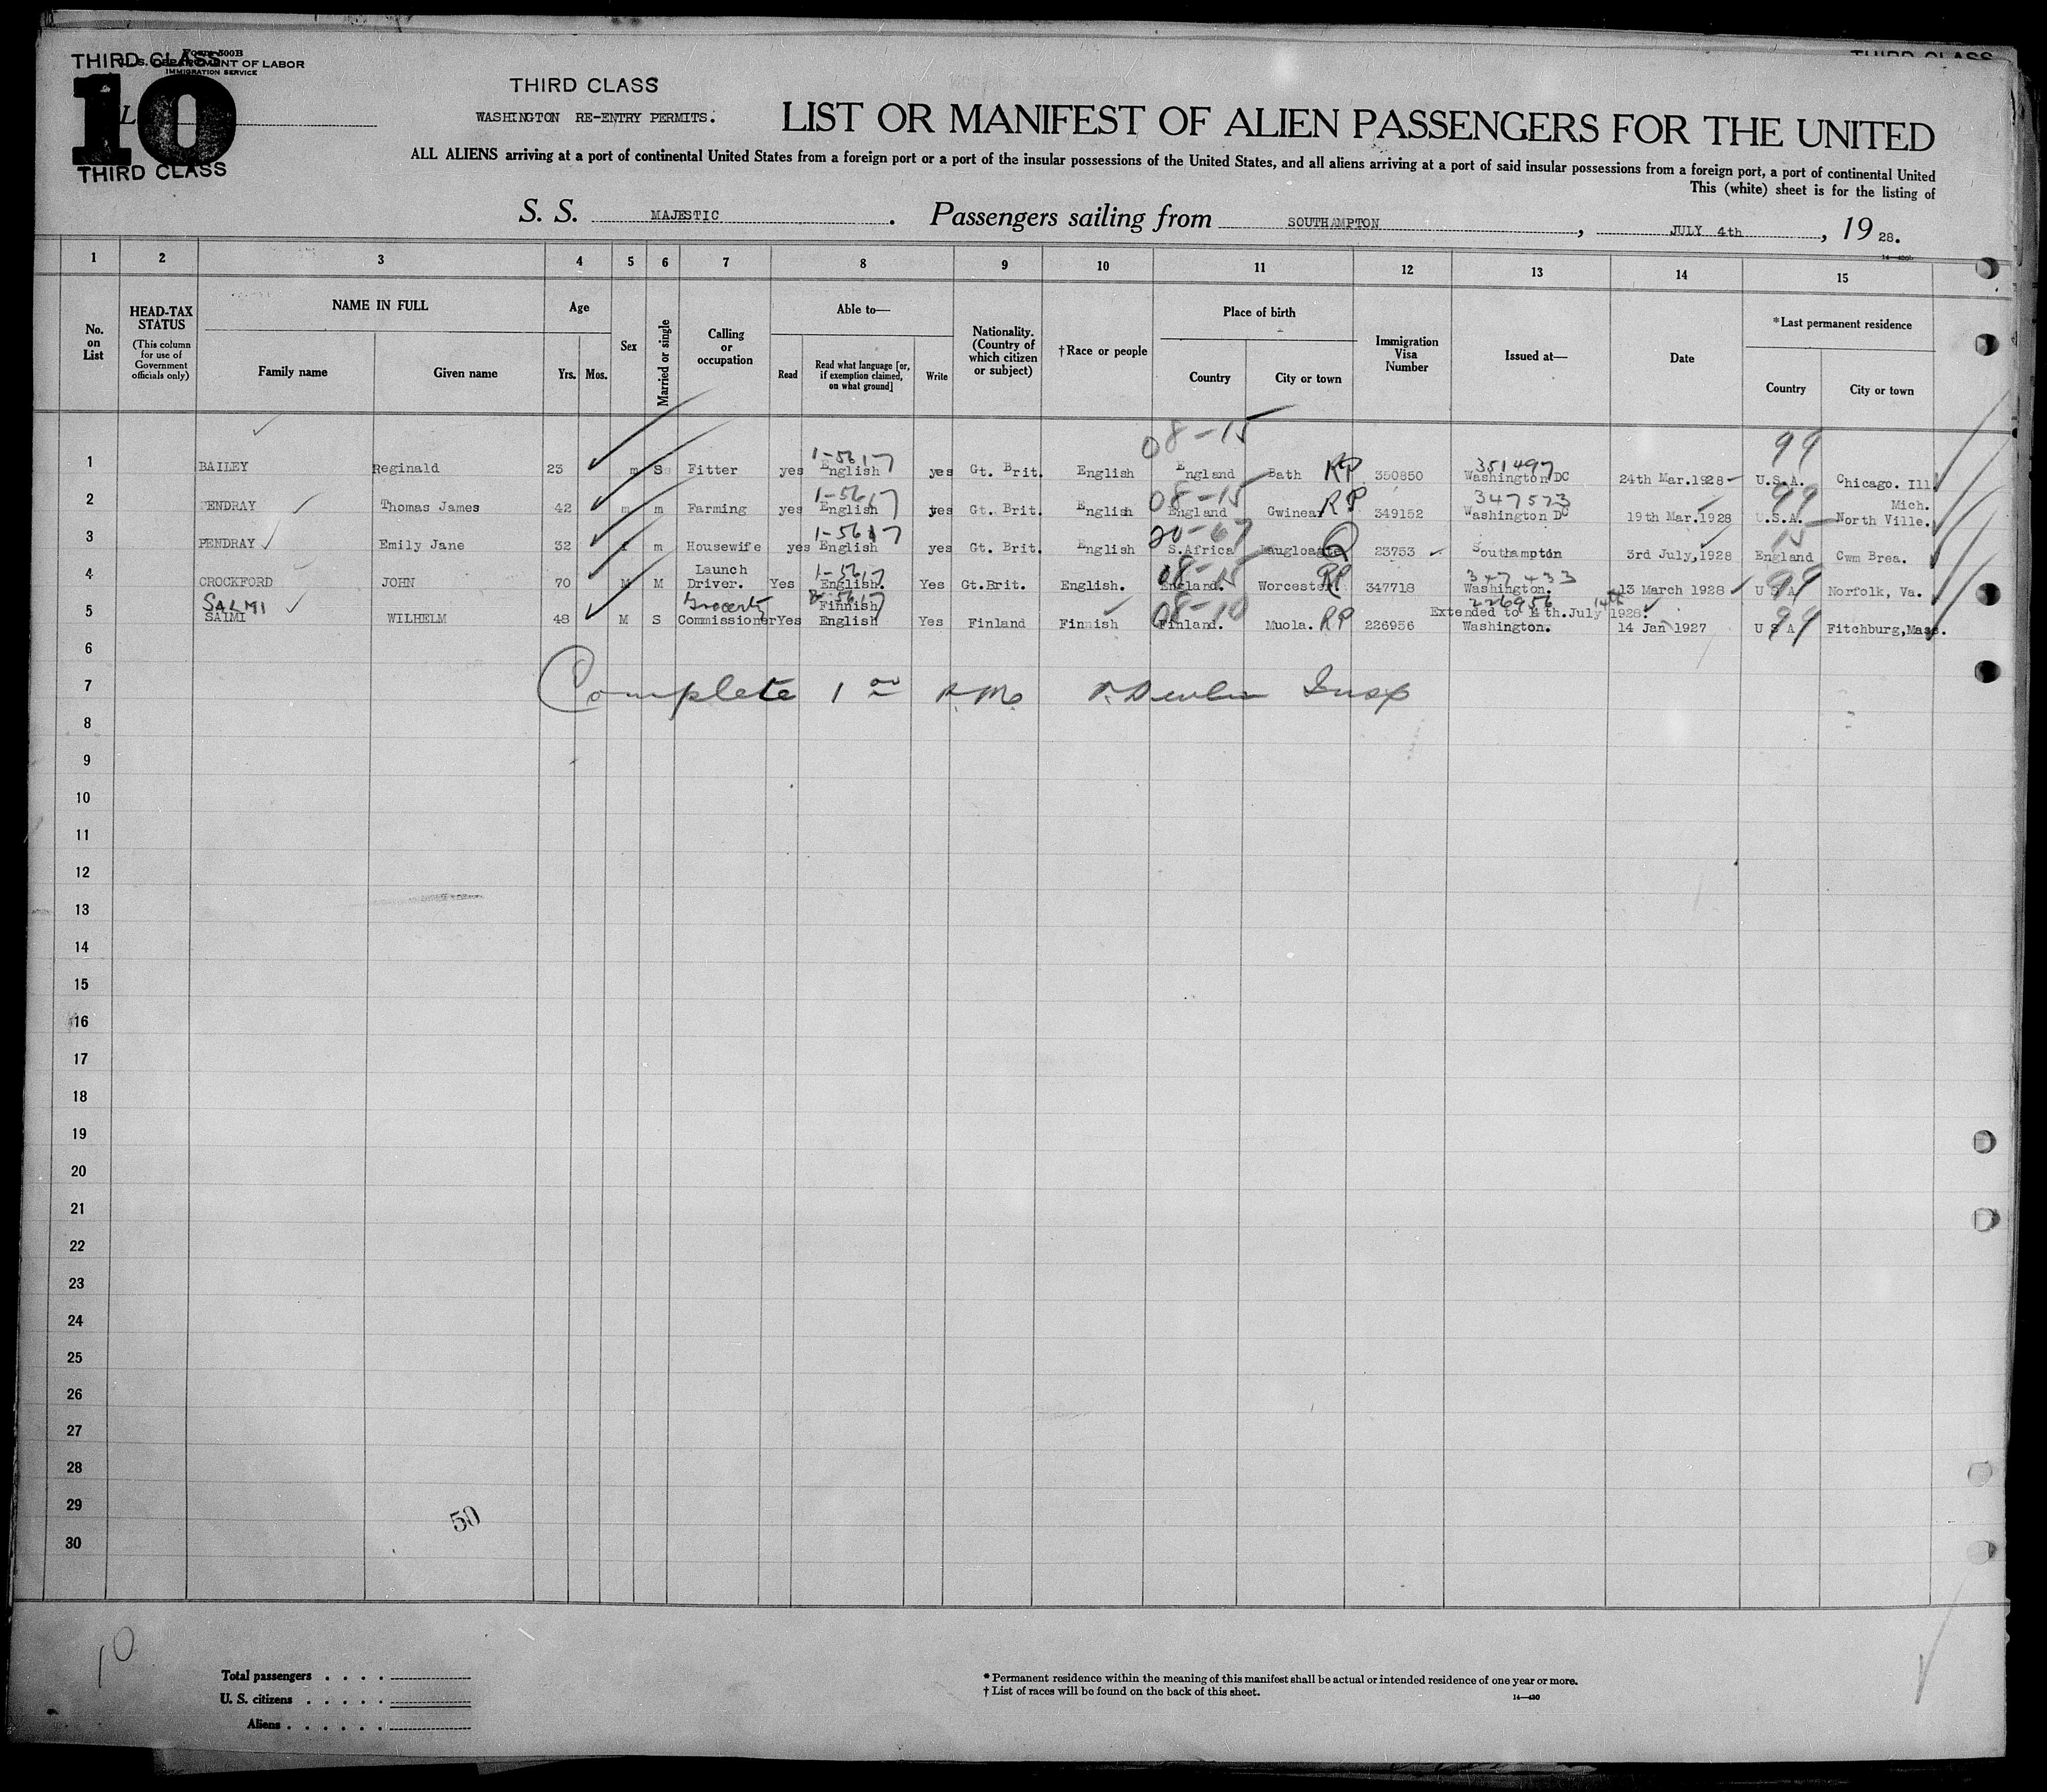 THIRD CLASS
Form 500B
U. S. DEPARTMENT OF LABOR
IMMIGRATION SERVICE
10
L
THIRD CLASS
THIRD CLASS
WASHINGTON RE-ENTRY PERMITS.
THIRD CLASS
LIST OR MANIFEST OF ALIEN PASSENGERS FOR THE UNITED
ALL ALIENS arriving at a port of continental United States from a foreign port or a port of the insular possessions of the United States, and all aliens arriving at a port of said insular possessions from a foreign port, a port of continental United
This (white) sheet is for the listing of
S. S. MAJESTIC. Passengers sailing from SOUTHAMPTON, JULY 4th, 19 28.
1 2 3 4 5 6 7 8 9 10 11 12 13 14 15
No. on List
HEAD-TAX STATUS (This column for use of Government officials only)
NAME IN FULL
Family name Given name
Age
Yrs. Mos.
Sex
Married or single
Calling or occupation
Able to—
Read Read what language [or, if exemption claimed, on what ground] Write
Nationality. (Country of which citizen or subject)
†Race or people
Place of birth
Country City or town
Immigration Visa Number
Issued at—
Date
*Last permanent residence
Country City or town
08-15 99
1-5617 351497
1 BAILEY Reginald 23 m S Fitter yes English yes Gt. Brit. English England Bath RP 350850 Washington DC 24th Mar.1928 U.S.A. Chicago. Ill.
1-5617 08-15 347523 99 Mich.
2 PENDRAY Thomas James 42 m m Farming yes English yes Gt. Brit. English England Gwinear RP 349152 Washington DC 19th Mar.1928 U.S.A. North Ville.
1-5617 20-67 15
3 PENDRAY Emily Jane 32 f m Housewife yes English yes Gt. Brit. English S.Africa Q 23753 Southampton 3rd July,1928 England Cwm Brea.
Launch 1-5617 08-15 347433 99
4 CROCKFORD JOHN 70 M M Driver. Yes English. Yes Gt.Brit. English. England. Worcester RP 347718 Washington. 13 March 1928 U S A Norfolk, Va.
SALMI 5617 Finnish 08-10 226956 Extended to 14th.July 1928. 14th 99
5 SALMI WILHELM 48 M S Commissioner Yes English Yes Finland Finnish Finland. Muola. RP 226956 Washington. 14 Jan 1927 U S A Fitchburg,Mass.
6
7 Complete 1 00 P.M. Insp
8
9
10
11
12
13
14
15
16
17
18
19
20
21
22
23
24
25
26
27
28
29
50
30
10
Total passengers . . . .
U. S. citizens . . . . .
Aliens . . . . . .
* Permanent residence within the meaning of this manifest shall be actual or intended residence of one year or more.
† List of races will be found on the back of this sheet.
14—430